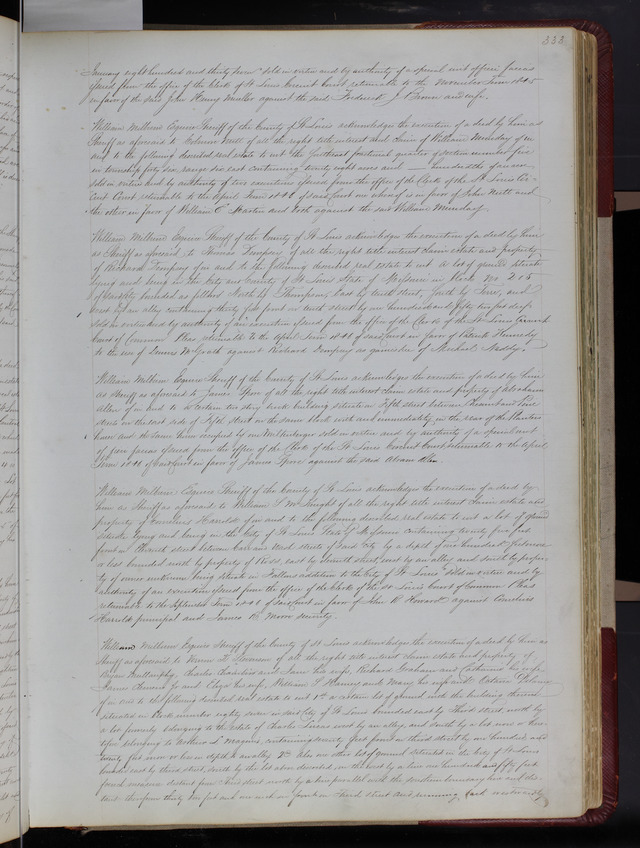 333
eight hundred and thirty seven sold in virtue and by authority of a special writ of fieri facias
issued from the office of the Clerk of St Louis Circuit Court returnable to the November Term 1845
in favor of the said John Henry Muller against the said Frederick J and wife.
William Milburn Esquire Sheriff of the County of St Louis acknowledges the execution of a deed by him as
Sheriff as aforesaid to of all the right title interest and claim of William Munday of in
and to the following described real estate to wit the fractional quarter of section number five
in township forty six range six east containing twenty eight acres and
sold in virtue and by authority of two executions issued from the office of the Clerk of the St Louis Cir-
cuit Court returnable to the April Term 1846 of said Court one in favor of John and
the other in favor of William C. and both against the said William Munday.
William Milburn Esquire Sheriff of the County of St Louis acknowledges the execution of a deed by him
as Sheriff as aforesaid, to Thomas Dempsey of all the right title interest claim estate and property
of Richard Dempsey of in and to the following described real estate to wit a lot of ground situate
lying and being in the City and County of St Louis State of Missouri in Block No. 205
of said City bounded as follows North by Thompson, East by street, South by and
west by an alley containing thirty feet front on street by one hundred and fifty two feet deep
sold in virtue and by authority of an execution issued from the office of the Clerk of the St Louis
Court of Common Pleas, returnable to the April Term 1846 of said Court in favor of Patrick
to the use of James McGrath against Richard Dempsey as garnishee of Michael
William Milburn Esquire Sheriff of the County of St Louis acknowledges the execution of a deed by him
as Sheriff as aforesaid to James Spore of all the right title interest claim estate and property of Abraham
Allen of in and to a certain two story brick building situate on Fifth street between and Pine
streets on the east side of Fifth street in the same block with and immediately in the rear of the Planters
House and the same House occupied by sold in virtue and by authority of a special writ
of fieri facias issued from the office of the Clerk of the St Louis Circuit Court, returnable to the April
Term 1846 of said Court in favor of James Spore against the said Abram Allen
William Milburn Esquire Sheriff of the County of St Louis acknowledges the execution of a deed by
him as Sheriff as aforesaid to William S. McKnight of all the right title interest claim estate and
property of Cornelius Harold of in and to the following described real estate to wit a lot of ground
situate lying and being in the City of St Louis State of Missouri containing twenty five feet
front on street between Carr and streets of said City by a depth of one hundred feet more
or less bounded north by property of Ross, east by Seventh street, west by an alley and south by proper-
ty of owner unknown being situate in addition to the City of St Louis Sold in virtue and by
authority of an execution issued from the office of the Clerk of the St Louis Court of Common Pleas
returnable to the September Term 1846 of said Court in favor of John R Howard against Cornelius
Harold principal and James B. Moore security.
William Milburn Esquire Sheriff of the County of St Louis acknowledges the execution of a deed by him as
Sheriff as aforesaid to of all the right title interest claim estate and property of
Bryan Mullanphy, Charles Chambers and Jane his wife, Richard Graham and Catharine his wife
James Clemens Jr and Eliza his wife, William S. Harney and Mary his wife and Octavia
of in and to the following described real estate to wit 1st a certain lot of ground with the building thereon
situated in block number eighty seven in said City of St Louis bounded east by Third street, north by
a lot formerly belonging to the estate of Charles Lucas west by an alley, and south by a lot now or here-
tofore belonging to Arthur L. Magenis, containing seventy feet front on third street by one hundred and
twenty feet more or less in depth to an alley 2nd Also an other lot of ground situated in the City of St Louis
bounded east by third street, south by the lot above described, on the west by a line one hundred and fifty feet
French measure distant from third street north by a line parallel with the southern boundary line and dis-
tant therefrom thirty six feet and one inch in front on third street and running back westwardly